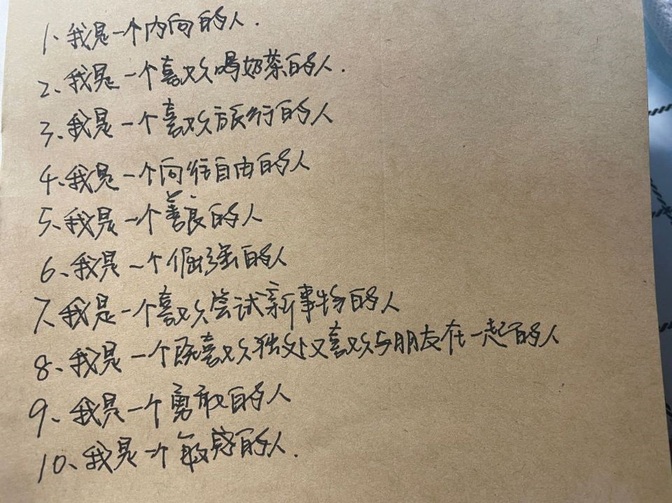 1、我是一个内向的人.
2、我是一个喜欢喝奶茶的人.
3、我是一个喜欢旅行的人
4、我是一个向往自由的人
5、我是一个善良的人
6、我是一个倔强的人
7、我是一个喜欢尝试新事物的人
8、我是一个既喜欢独处又喜欢与朋友在一起的人
9、我是一个勇敢的人
10、我是一个敏感的人.